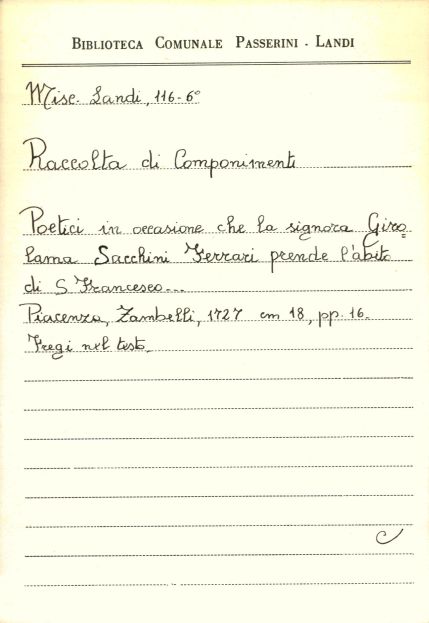 BIBLIOTECA COMUNALE PASSERINI - LANDI
Misc. Landi, 116-6°
Raccolta di Componimenti
Poetici in occasione che la signora Giro=
lama Sacchini Ferrari prende l'abito
di S. Francesco...
Piacenza, Zambelli, 1727 cm 18, pp. 16.
Fregi nel testo.
C